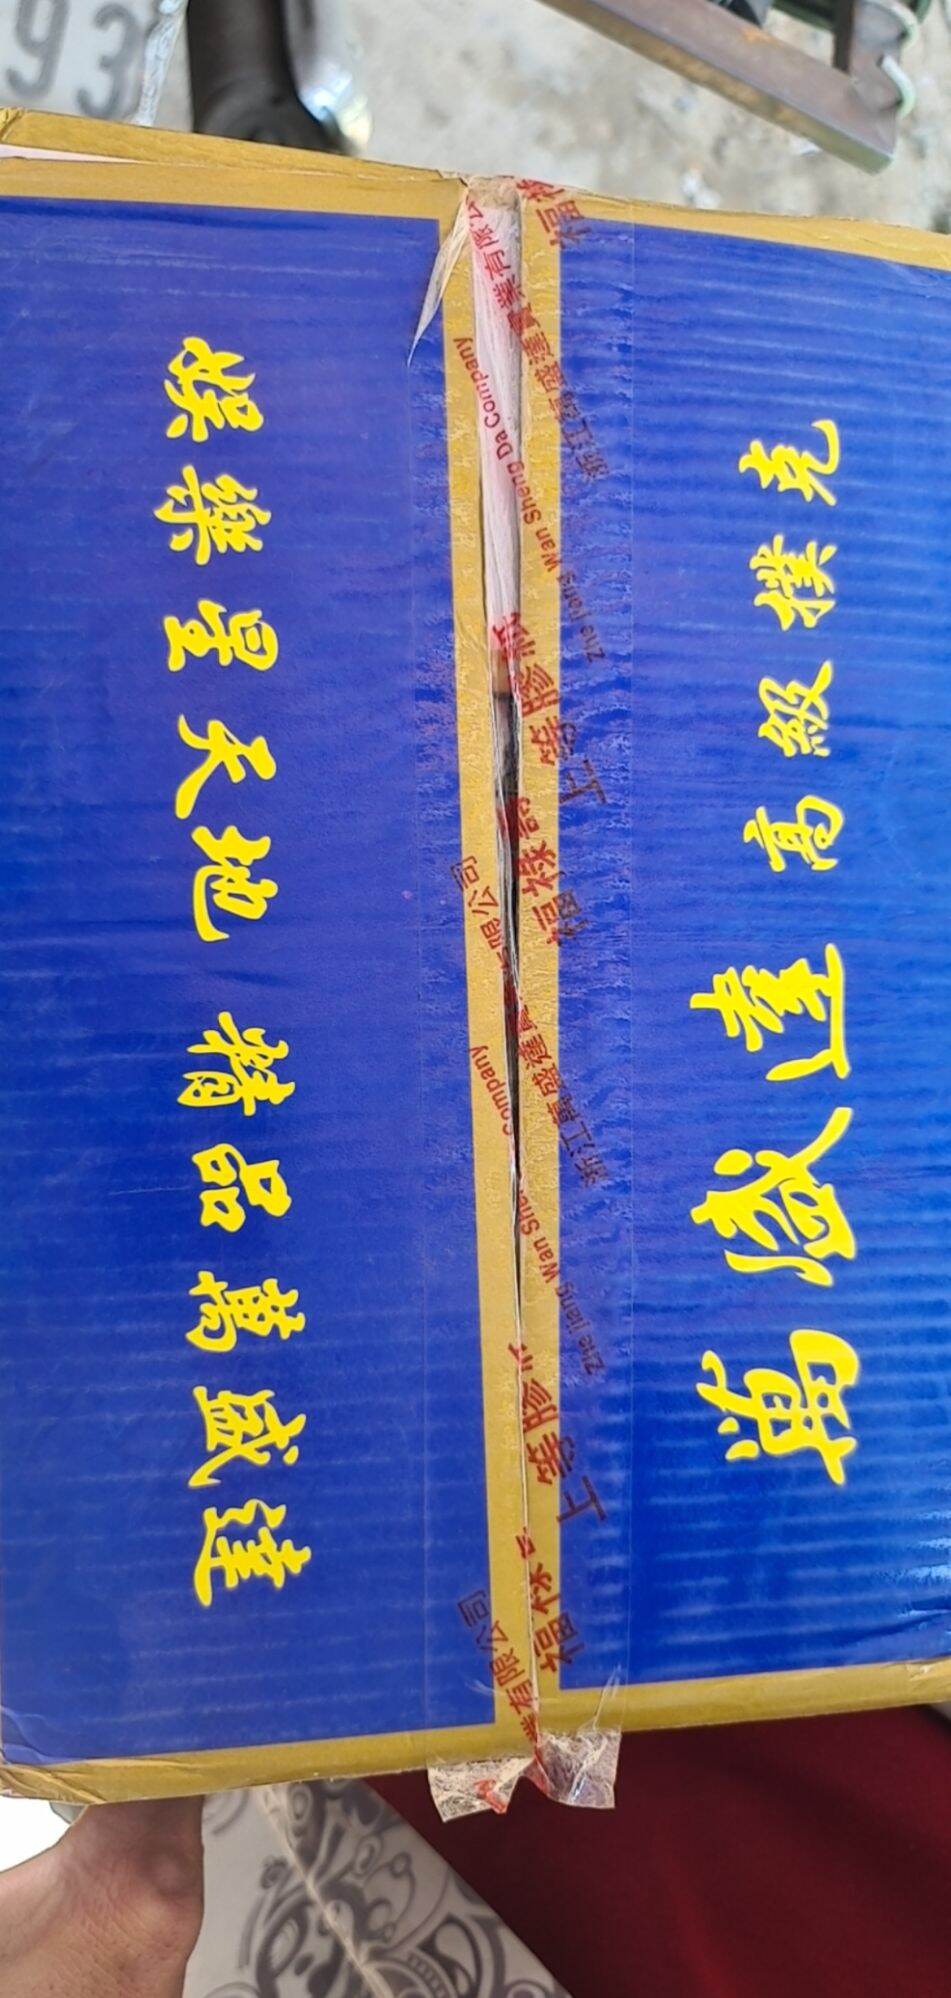 93
娛樂星天地 精品萬盛達
萬盛達 高級撲克
福祿壽 上等膠紙
浙江萬盛達實業有限公司
Zhe jiang Wan Sheng Da Company
福祿壽 上等膠
浙江萬盛達實業有限公司
Zhe jiang Wan She Company
業有限公司